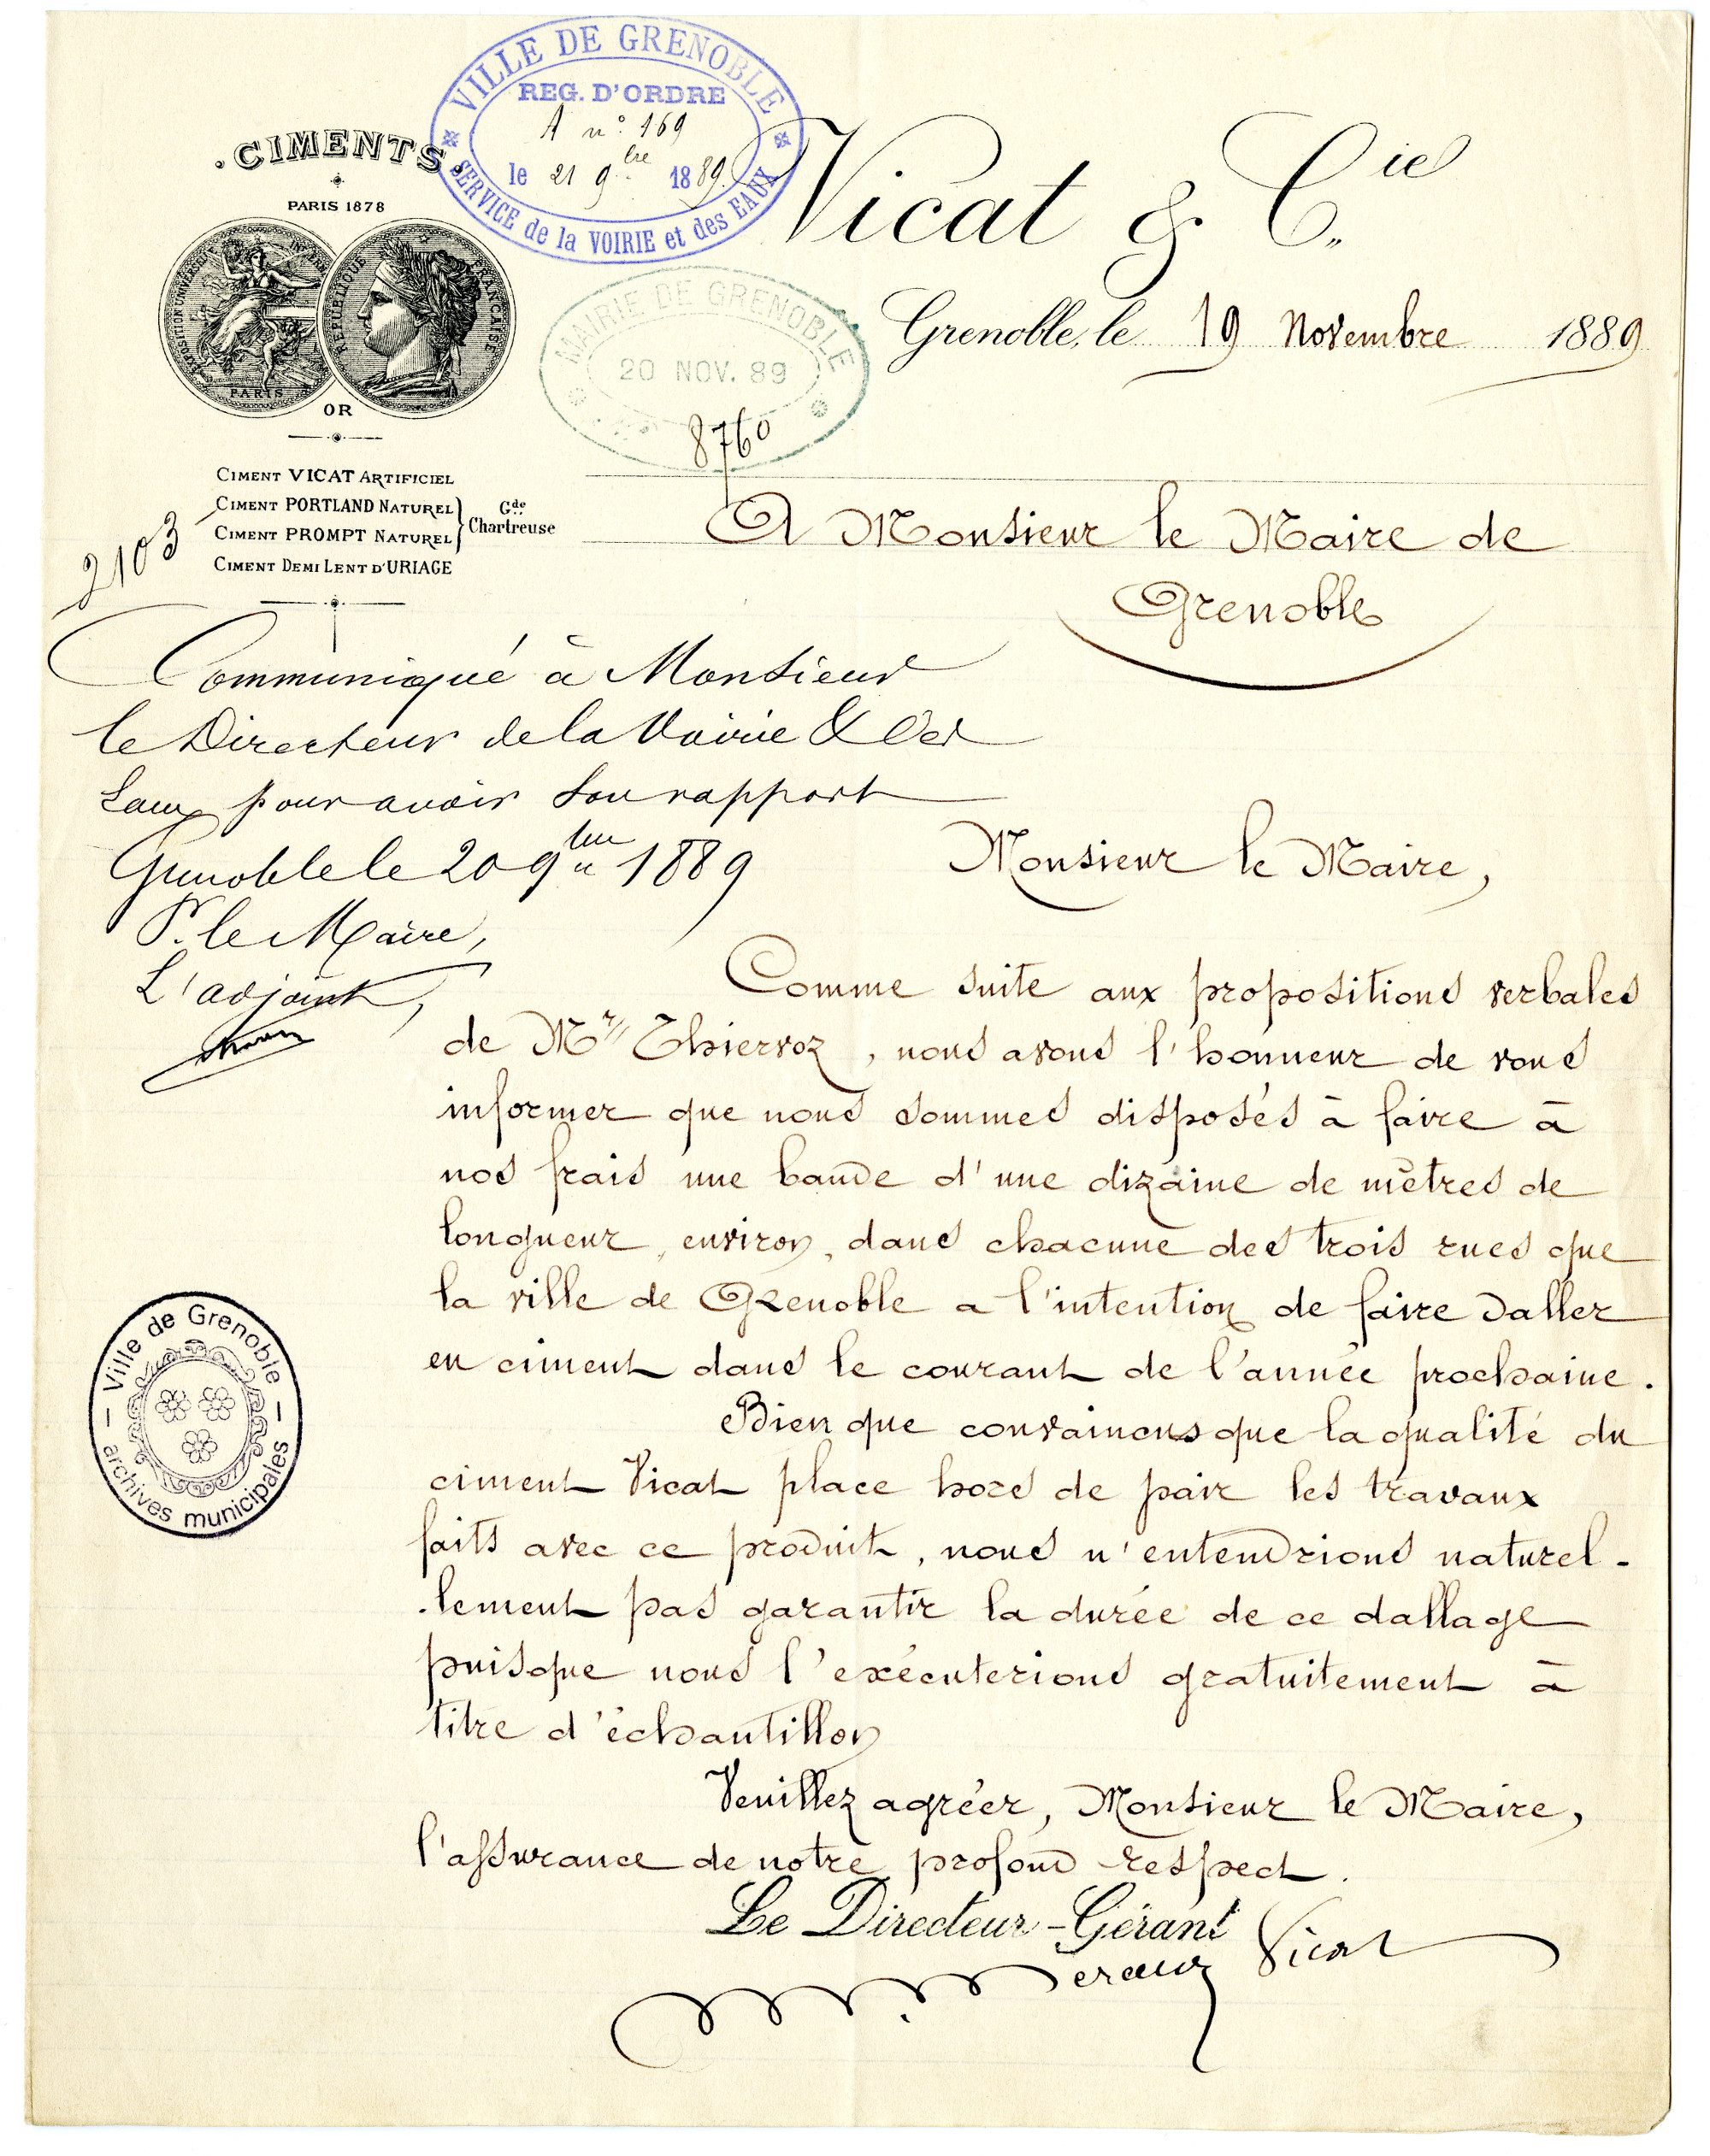 VILLE DE GRENOBLE
REG. D'ORDRE
A n° 169
le 21 9bre 1889
SERVICE de la VOIRIE et des EAUX
CIMENTS
PARIS 1878
EXPOSITION UNIVERSELLE
PARIS
REPUBLIQUE FRANÇAISE
OR
Vicat & Cie
MAIRIE DE GRENOBLE
20 NOV. 89
8760
Grenoble, le 19 Novembre 1889
CIMENT VICAT ARTIFICIEL
CIMENT PORTLAND NATUREL
CIMENT PROMPT NATUREL
Gde Chartreuse
CIMENT DEMI LENT D'URIAGE
2103
A Monsieur le Maire de
Grenoble
Communiqué à Monsieur
le Directeur de la Voirie & des
Eaux pour avoir son rapport
Grenoble le 20 9bre 1889
Pr. le Maire,
L'adjoint,
Monsieur le Maire,
Comme suite aux propositions verbales
de Mr Thiervoz, nous avons l'honneur de vous
informer que nous sommes disposés à faire à
nos frais une bande d'une dizaine de mètres de
longueur, environ, dans chacune des trois rues que
la ville de Grenoble a l'intention de faire daller
en ciment dans le courant de l'année prochaine.
Bien que convaincus que la qualité du
ciment Vicat place hors de pair les travaux
faits avec ce produit, nous n'entendrions naturel-
lement pas garantir la durée de ce dallage
puisque nous l'exécuterions gratuitement à
titre d'échantillon
Veuillez agréer, Monsieur le Maire,
l'assurance de notre profond respect.
Le Directeur-Gérant
Merceron Vicat
Ville de Grenoble
archives municipales